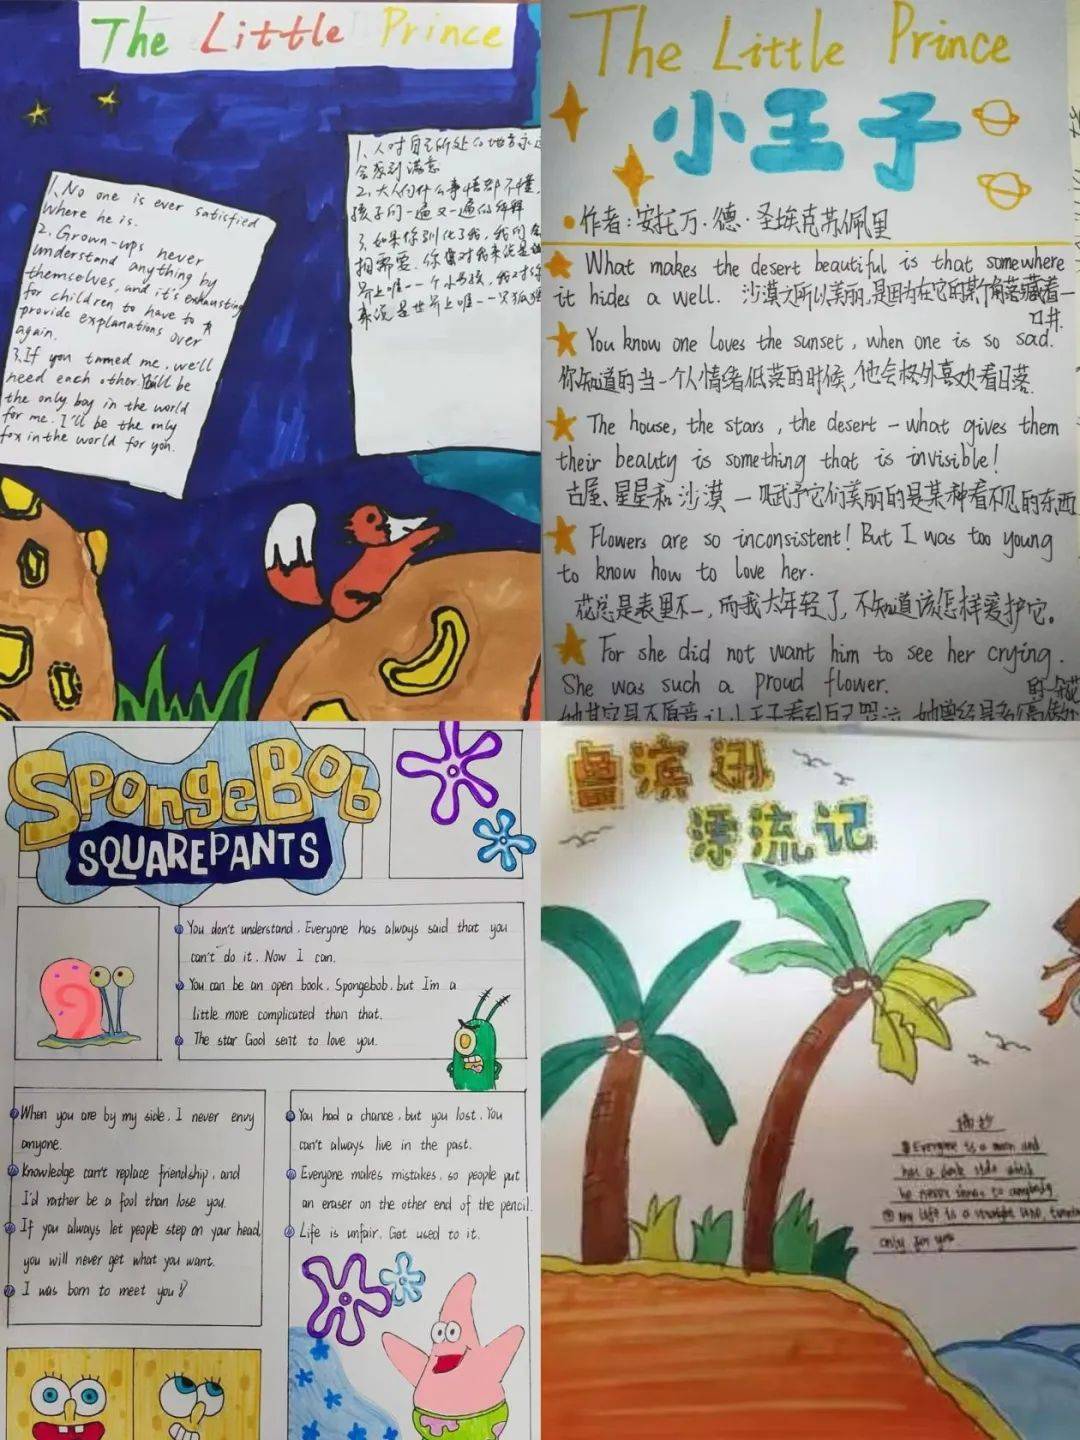 The Little Prince
1、No one is ever satisfied
where he is.
2. Grown-ups never
understand anything by
themselves, and it's exhausting
for children to have to
provide explanations over
again.
3.If you tamed me, we'll
need each other. You'll be
the only boy in the world
for me. I'll be the only
fox in the world for you.
1、人对自己所处的地方永远
会感到满意
2、大人们什么事情都不懂,
孩子们一遍又一遍的解释
3、如果你驯化了我,我们会
相需要.你
界上唯一一个小男孩,我对你
来说是世界上唯一一只狐狸
The Little Prince
小王子
•作者:安托万·德·圣埃克苏佩里
What makes the desert beautiful is that somewhere
it hides a well. 沙漠之所以美丽,是因为在它的某个角落藏着一
口井.
You know one loves the sunset, when one is so sad.
你知道的当一个人情绪低落的时候,他会格外喜欢看日落.
The house, the stars, the desert – what gives them
their beauty is something that is invisible!
古屋、星星和沙漠一赋予它们美丽的是某种看不见的东西
Flowers are so inconsistent! But I was too young
to know how to love her.
花总是表里不一,而我太年轻了,不知道该怎样爱护它。
For she did not want him to see her crying.
She was such a proud flower.
的一朵花
她其实是不愿意让小王子看到自己哭泣,她曾经是多么高傲
SpongeBob
SQUAREPANTS
You don't understand. Everyone has always said that you
can't do it. Now I can.
You can be an open book, Spongebob, but I'm a
little more complicated than that.
The star God sent to love you.
When you are by my side, I never envy
anyone.
Knowledge can't replace friendship, and
I'd rather be a fool than lose you.
If you always let people step on your head,
you will never get what you want.
I was born to meet you!
You had a chance, but you lost. You
can't always live in the past.
Everyone makes mistakes, so people put
an eraser on the other end of the pencil.
Life is unfair. Get used to it.
鲁滨逊
漂流记
摘抄
①Everyone is a moon and
has a dark side which
he never shows to anybody
②My life is a straight line, turning
only for you.